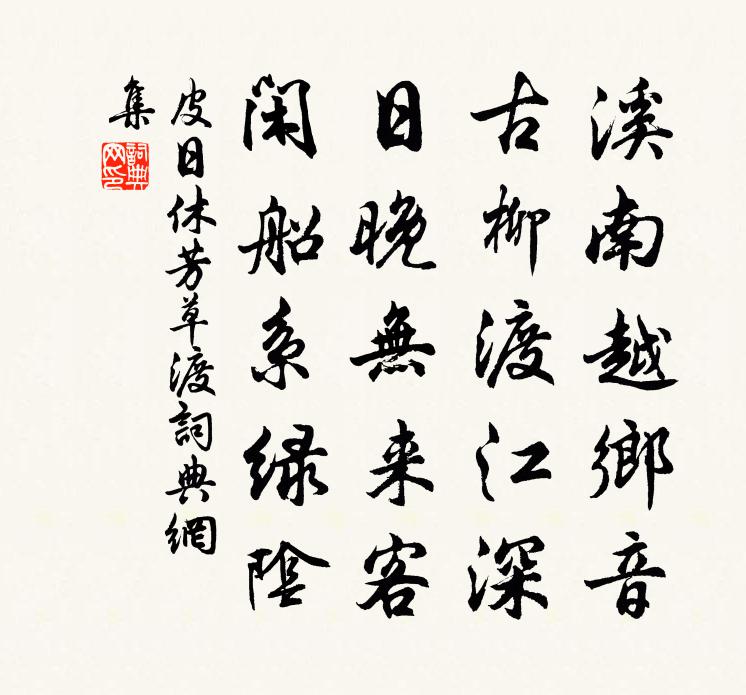 溪南越鄉音
古柳渡江深
日晚無来客
閑船系绿陰
皮日休芳草渡詞典網
集
詞典
网印